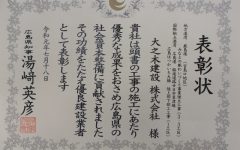 表彰状
大之木建設 株式会社 様
貴社は頭書の工事の施工にあたり
優秀な成果をおさめ広島県の
社会資本整備に貢献されました
その功績をたたえ優良建設業者
として表彰します
令和元年七月十八日
広島県知事 湯﨑英彦